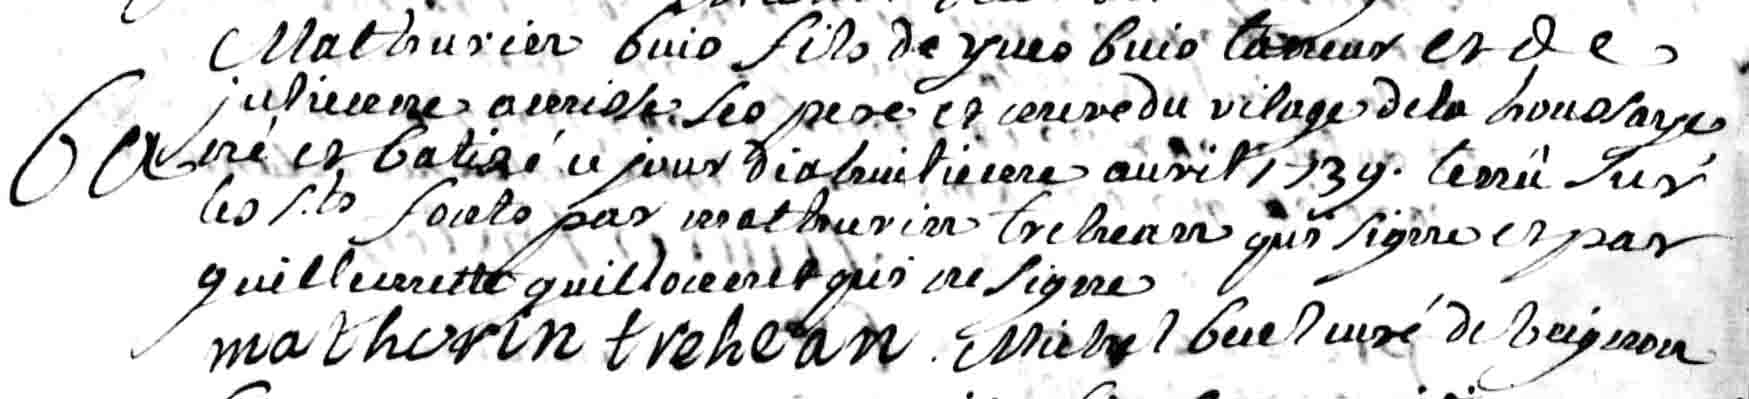 Mathurin buis fils de yues buis taneur et de
julienne ses pere et mere du vilage de la houssaye
Ba né et batisé ce jour dishuitieme auril 1739. tenû sur
les s.ts fonts par mathurin trehean qui signe et par
guillemette guillouet qui ne signe
mathurin trehean. Michel buel curé de beignon